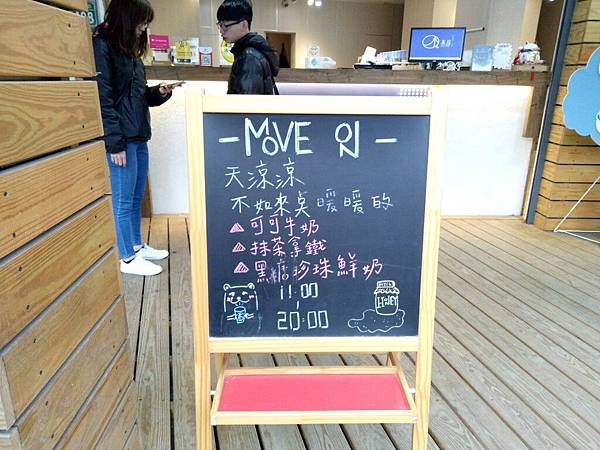 - MOVE ON -
天涼涼
不如來点暖暖的
可可牛奶
抹茶拿鐵
黑糖珍珠鮮奶
11:00
|
20:00